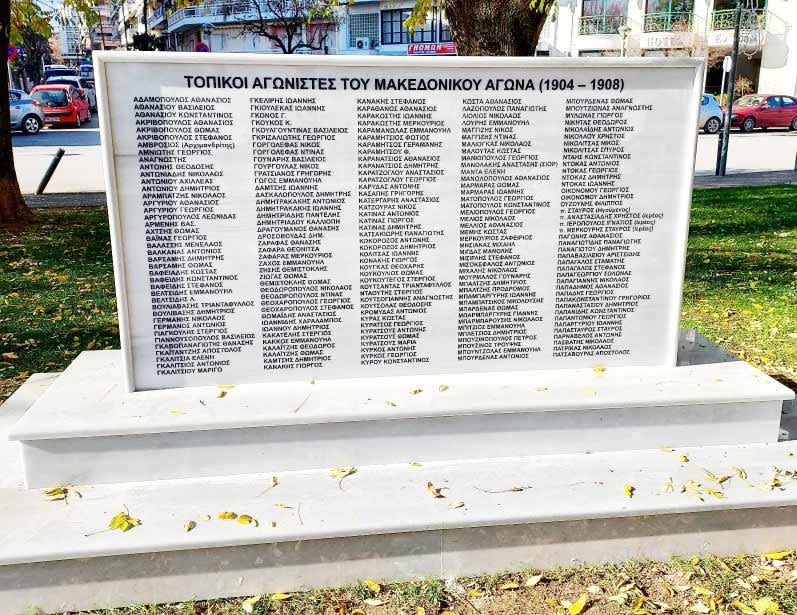 ΤΟΠΙΚΟΙ ΑΓΩΝΙΣΤΕΣ ΤΟΥ ΜΑΚΕΔΟΝΙΚΟΥ ΑΓΩΝΑ (1904 – 1908)
ΑΔΑΜΟΠΟΥΛΟΣ ΑΘΑΝΑΣΙΟΣ
ΑΘΑΝΑΣΙΟΥ ΒΑΣΙΛΕΙΟΣ
ΑΘΑΝΑΣΙΟΥ ΚΩΝΣΤΑΝΤΙΝΟΣ
ΑΚΡΙΒΟΠΟΥΛΟΣ ΑΘΑΝΑΣΙΟΣ
ΑΚΡΙΒΟΠΟΥΛΟΣ ΘΩΜΑΣ
ΑΚΡΙΒΟΠΟΥΛΟΣ ΣΤΕΦΑΝΟΣ
ΑΜΒΡΟΣΙΟΣ (Αρχιμανδρίτης)
ΑΜΝΙΩΤΗΣ ΓΕΩΡΓΙΟΣ
ΑΝΑΓΝΩΣΤΗΣ
ΑΝΤΩΝΗΣ ΘΕΟΔΟΣΗΣ
ΑΝΤΩΝΙΑΔΗΣ ΝΙΚΟΛΑΟΣ
ΑΝΤΩΝΙΟΥ ΑΧΙΛΛΕΑΣ
ΑΝΤΩΝΙΟΥ ΔΗΜΗΤΡΙΟΣ
ΑΡΑΜΠΑΤΖΗΣ ΝΙΚΟΛΑΟΣ
ΑΡΓΥΡΙΟΥ ΑΘΑΝΑΣΙΟΣ
ΑΡΓΥΡΙΟΥ ΓΕΩΡΓΙΟΣ
ΑΡΓΥΡΟΠΟΥΛΟΣ ΛΕΩΝΙΔΑΣ
ΑΡΜΕΝΗΣ ΒΑΣ.
ΑΧΤΣΗΣ ΘΩΜΑΣ
ΒΑΪΝΑΣ ΓΕΩΡΓΙΟΣ
ΒΑΛΑΣΣΗΣ ΜΕΝΕΛΑΟΣ
ΒΑΛΚΑΝΑΣ ΑΝΤΩΝΙΟΣ
ΒΑΡΣΑΜΗΣ ΘΩΜΑΣ
ΒΑΦΕΙΔΗΣ ΚΩΣΤΑΣ
ΒΑΦΕΙΔΗΣ ΚΩΝΣΤΑΝΤΙΝΟΣ
ΒΑΦΕΙΔΗΣ ΣΤΕΦΑΝΟΣ
ΒΕΛΤΣΙΔΗΣ ΕΜΜΑΝΟΥΗΛ
ΒΕΛΤΣΙΔΗΣ Λ.
ΒΟΥΛΙΒΑΣΗΣ ΤΡΙΑΝΤΑΦΥΛΛΟΣ
ΒΟΥΛΙΒΑΣΗΣ ΔΗΜΗΤΡΙΟΣ
ΓΕΡΜΑΝΗΣ ΝΙΚΟΛΑΟΣ
ΓΕΡΜΑΝΟΣ ΑΝΤΩΝΙΟΣ
ΓΙΑΓΚΟΥΛΗΣ ΣΤΕΡΓΙΟΣ
ΓΙΑΝΝΟΥΣΟΠΟΥΛΟΣ ΒΑΣΙΛΕΙΟΣ
ΓΚΑΒΟΠΑΝΑΓΙΩΤΗΣ ΘΑΝΑΣΗΣ
ΓΚΑΪΤΑΝΤΖΗΣ ΑΠΟΣΤΟΛΟΣ
ΓΚΑΛΙΤΣΙΑ ΕΛΕΝΗ
ΓΚΑΛΙΤΣΙΟΥ ΑΝΤΩΝΙΟΣ
ΓΚΑΛΙΤΣΙΟΥ ΜΑΡΙΓΩ
ΓΚΕΛΙΡΗΣ ΙΩΑΝΝΗΣ
ΓΚΙΟΥΛΕΚΑΣ ΙΩΑΝΝΗΣ
ΓΚΙΟΝΟΣ Γ.
ΓΚΙΟΥΚΟΣ Κ.
ΓΚΟΥΛΓΟΥΝΤΙΝΑΣ ΒΑΣΙΛΕΙΟΣ
ΓΚΡΙΖΑΛΙΩΤΗΣ ΓΕΩΡΓΙΟΣ
ΓΟΡΓΟΛΕΦΑΣ ΝΙΚΟΣ
ΓΟΡΓΟΛΕΦΑΣ ΝΤΙΝΑΣ
ΓΟΥΝΑΡΗΣ ΒΑΣΙΛΕΙΟΣ
ΓΟΥΡΓΟΥΛΑΣ ΝΙΚΟΣ
ΓΡΑΤΣΙΑΝΟΣ ΓΡΗΓΟΡΗΣ
ΓΩΓΟΣ ΕΜΜΑΝΟΥΗΛ
ΔΑΜΤΣΗΣ ΙΩΑΝΝΗΣ
ΔΑΣΚΑΛΟΠΟΥΛΟΣ ΔΗΜΗΤΡΙΟΣ
ΔΗΜΗΤΡΑΚΑΚΗΣ ΑΝΤΩΝΙΟΣ
ΔΗΜΗΤΡΑΚΑΚΗΣ ΙΩΑΝΝΗΣ
ΔΗΜΗΤΡΙΑΔΗΣ ΠΑΝΤΕΛΗΣ
ΔΗΜΗΤΡΙΑΔΟΥ ΚΑΛΛΙΟΠΗ
ΔΡΑΓΟΥΜΑΝΟΣ ΘΑΝΑΣΗΣ
ΔΡΟΣΟΒΟΥΔΑΣ ΔΗΜ.
ΖΑΡΑΦΑΣ ΘΑΝΑΣΗΣ
ΖΑΦΑΡΑ ΘΕΟΝΙΤΣΑ
ΖΑΦΑΡΑΣ ΜΕΡΚΟΥΡΙΟΣ
ΖΑΧΟΣ ΕΜΜΑΝΟΥΗΛ
ΖΗΣΗΣ ΘΕΜΙΣΤΟΚΛΗΣ
ΖΙΩΓΑΣ ΘΩΜΑΣ
ΘΕΜΙΣΤΟΚΛΗΣ ΘΩΜΑΣ
ΘΕΟΔΩΡΟΠΟΥΛΟΣ ΝΙΚΟΛΑΟΣ
ΘΕΟΔΩΡΟΠΟΥΛΟΣ ΝΤΙΝΑΣ
ΘΕΟΧΑΡΟΠΟΥΛΟΣ ΓΕΩΡΓΙΟΣ
ΘΕΟΧΑΡΟΠΟΥΛΟΣ ΣΤΕΦΑΝΟΣ
ΘΩΜΑΪΔΗΣ ΑΝΑΣΤΑΣΙΟΣ
ΙΩΑΝΝΙΔΗΣ ΧΑΡΑΛΑΜΠΟΣ
ΙΩΑΝΝΟΥ ΔΗΜΗΤΡΙΟΣ
ΚΑΚΑΤΕΛΗΣ ΣΤΕΡΓΙΟΣ
ΚΑΚΚΟΣ ΕΜΜΑΝΟΥΗΛ
ΚΑΛΑΪΤΖΗΣ ΘΕΟΔΩΡΟΣ
ΚΑΛΑΪΤΖΗΣ ΘΩΜΑΣ
ΚΑΜΤΣΗΣ ΔΗΜΗΤΡΙΟΣ
ΚΑΝΑΚΗΣ ΓΙΩΡΓΟΣ
ΚΑΝΑΚΗΣ ΣΤΕΦΑΝΟΣ
ΚΑΡΑΘΑΝΟΣ ΑΘΑΝΑΣΙΟΣ
ΚΑΡΑΚΩΣΤΗΣ ΙΩΑΝΝΗΣ
ΚΑΡΑΚΩΣΤΗΣ ΓΕΩΡΓΙΟΣ
ΚΑΡΑΜΑΝΩΛΑΣ ΕΜΜΑΝΟΥΗΛ
ΚΑΡΑΜΗΤΣΙΟΣ ΦΩΤΙΟΣ
ΚΑΡΑΜΗΤΣΗΣ ΓΕΡΑΜΑΝΗΣ
ΚΑΡΑΜΗΤΣΟΥ Φ.
ΚΑΡΑΝΑΤΣΙΟΣ ΑΘΑΝΑΣΙΟΣ
ΚΑΡΑΝΑΤΣΙΟΣ ΔΗΜΗΤΡΙΟΣ
ΚΑΡΑΤΖΟΓΛΟΥ ΑΝΑΣΤΑΣΙΟΣ
ΚΑΡΑΤΖΟΓΛΟΥ ΓΕΩΡΓΙΟΣ
ΚΑΡΥΔΑΣ ΑΝΤΩΝΙΟΣ
ΚΑΣΑΠΗΣ ΓΡΗΓΟΡΗΣ
ΚΑΤΣΕΡΤΑΡΗΣ ΑΝΑΣΤΑΣΙΟΣ
ΚΑΤΖΟΥΡΑΣ ΝΙΚΟΣ
ΚΑΤΙΝΑΣ ΑΝΤΩΝΙΟΣ
ΚΑΤΙΝΑΣ ΓΙΩΡΓΟΣ
ΚΑΤΙΝΑΣ ΔΗΜΗΤΡΙΟΣ
ΚΑΤΣΑΚΙΩΡΗΣ ΠΑΝΑΓΙΩΤΗΣ
ΚΟΚΟΡΟΖΟΣ ΑΝΤΩΝΙΟΣ
ΚΟΚΟΡΟΖΟΣ ΔΗΜΗΤΡΙΟΣ
ΚΟΛΙΤΣΑΣ ΙΩΑΝΝΗΣ
ΚΟΝΑΚΗΣ ΓΙΩΡΓΟΣ
ΚΟΥΓΚΑΣ ΘΕΟΧΑΡΗΣ
ΚΟΥΚΟΥΛΙΟΣ ΘΩΜΑΣ
ΚΟΥΚΟΥΤΕΓΟΣ ΣΤΕΡΓΙΟΣ
ΚΟΥΤΣΑΝΤΑΣ ΤΡΙΑΝΤΑΦΥΛΛΟΣ
ΝΤΑΟΥΤΗΣ ΣΤΕΡΓΙΟΣ
ΚΟΥΤΣΟΓΙΑΝΝΗΣ ΑΝΑΓΝΩΣΤΗΣ
ΚΟΥΤΣΟΛΑΣ ΘΕΟΔΟΣΗΣ
ΚΡΟΜΥΔΑΣ ΑΝΤΩΝΙΟΣ
ΚΥΡΑΣ ΚΩΣΤΑΣ
ΚΥΡΑΤΣΟΣ ΓΕΩΡΓΙΟΣ
ΚΥΡΑΤΣΟΥΣ ΑΝΤΩΝΗΣ
ΚΥΡΑΤΣΟΥΣ ΘΩΜΑΣ
ΚΥΡΑΤΣΟΥΣ ΜΑΡΙΑ
ΚΥΡΚΟΣ ΑΝΤΩΝΗΣ
ΚΥΡΚΟΣ ΓΕΩΡΓΙΟΣ
ΚΥΡΟΥ ΚΩΝΣΤΑΝΤΙΝΟΣ
ΚΩΣΤΑ ΑΘΑΝΑΣΙΟΣ
ΛΑΖΟΠΟΥΛΟΣ ΠΑΝΑΓΙΩΤΗΣ
ΛΙΟΛΙΟΣ ΝΙΚΟΛΑΟΣ
ΛΙΟΥΡΗΣ ΕΜΜΑΝΟΥΗΛ
ΜΑΓΓΙΖΗΣ ΝΙΚΟΣ
ΜΑΓΓΙΖΗΣ ΝΤΙΝΑΣ
ΜΑΛΙΟΓΚΑΣ ΝΙΚΟΛΑΟΣ
ΜΑΛΟΥΤΑΣ ΚΩΣΤΑΣ
ΜΑΝΙΟΠΟΥΛΟΣ ΓΕΩΡΓΙΟΣ
ΜΑΝΩΛΑΚΗΣ ΑΝΑΣΤΑΣΗΣ (ΣΙΩΡ)
ΜΑΝΤΑ ΕΛΕΝΗ
ΜΑΝΩΛΟΠΟΥΛΟΣ ΑΘΑΝΑΣΙΟΣ
ΜΑΡΜΑΡΑΣ ΘΩΜΑΣ
ΜΑΡΜΑΡΑΣ ΙΩΑΝΝΗΣ
ΜΑΤΟΠΟΥΛΟΣ ΓΕΩΡΓΙΟΣ
ΜΑΤΟΠΟΥΛΟΣ ΚΩΝΣΤΑΝΤΙΝΟΣ
ΜΕΛΙΟΠΟΥΛΟΣ ΓΕΩΡΓΙΟΣ
ΜΕΛΙΟΣ ΝΙΚΟΛΑΟΣ
ΜΕΛΛΙΟΣ ΑΘΑΝΑΣΙΟΣ
ΜΕΜΗΣ ΚΩΣΤΑΣ
ΜΕΡΚΟΥΡΙΟΣ ΖΑΦΕΙΡΗΣ
ΜΕΣΙΑΚΑΣ ΜΙΧΑΗΛ
ΜΙΓΔΑΣ ΜΑΝΩΛΗΣ
ΜΙΣΙΡΛΗΣ ΣΤΕΦΑΝΟΣ
ΜΙΣΟΚΕΦΑΛΟΣ ΑΝΤΩΝΙΟΣ
ΜΙΧΑΛΗΣ ΝΙΚΟΛΑΟΣ
ΜΟΥΡΜΑΛΟΣ ΓΟΥΝΑΡΗΣ
ΜΠΑΛΤΣΗΣ ΔΗΜΗΤΡΙΟΣ
ΜΠΑΜΠΑΡΓΥΡΗΣ ΙΩΑΝΝΗΣ
ΜΠΑΜΠΑΤΣΙΚΟΣ ΝΙΚΟΛΟΥΣΗΣ
ΜΠΑΡΑΣ ΘΩΜΑΣ
ΜΠΑΡΜΠΑΡΓΥΡΗΣ ΓΙΑΝΝΗΣ
ΜΠΑΡΜΠΑΛΙΑΣΗΣ ΝΙΚΟΛΑΟΣ
ΜΠΕΡΣΟΣ ΝΙΚΟΣ
ΜΠΙΤΣΙΟΣ ΕΜΜΑΝΟΥΗΛ
ΜΠΛΕΤΣΙΟΣ ΔΗΜΗΤΡΙΟΣ
ΜΠΛΕΤΣΗΣ ΠΡΟΔΡΟΜΟΣ
ΜΠΟΥΖΙΝΟΠΟΥΛΟΣ ΠΕΤΡΟΣ
ΜΠΟΥΖΙΝΟΣ ΤΡΟΥΨΗΣ
ΜΠΟΥΝΤΖΟΛΑΣ ΕΜΜΑΝΟΥΗΛ
ΜΠΟΥΡΔΕΝΑΣ ΑΝΤΩΝΙΟΣ
ΜΠΟΥΡΔΕΝΑΣ ΘΩΜΑΣ
ΜΠΟΥΤΖΙΩΝΑΣ ΑΝΑΓΝΩΣΤΗΣ
ΜΥΛΩΝΑΣ ΓΙΩΡΓΟΣ
ΝΙΚΗΤΑΣ ΘΕΟΔΩΡΟΣ
ΝΙΚΟΛΑΪΔΗΣ ΑΝΤΩΝΙΟΣ
ΝΙΚΟΛΑΟΥ ΧΡΗΣΤΟΣ
ΝΙΚΟΛΙΤΣΑΣ ΝΙΚΟΣ
ΝΙΚΟΛΙΤΣΑΣ ΣΠΥΡΟΣ
ΝΤΑΗΣ ΚΩΝΣΤΑΝΤΙΝΟΣ
ΝΤΟΚΑΣ ΑΝΤΩΝΙΟΣ
ΝΤΟΚΑΣ ΓΕΩΡΓΙΟΣ
ΝΤΟΚΑΣ ΔΗΜΗΤΡΙΟΣ
ΝΤΟΚΑΣ ΙΩΑΝΝΗΣ
ΟΙΚΟΝΟΜΟΥ ΓΕΩΡΓΙΟΣ
ΟΙΚΟΝΟΜΟΥ ΔΗΜΗΤΡΙΟΣ
ΟΥΖΟΥΝΗΣ ΦΙΛΙΠΠΟΣ
π. ΣΤΑΥΡΟΣ (Ηγούμενος)
π. ΑΝΑΣΤΑΣΙΑΔΗΣ ΧΡΗΣΤΟΣ (Ιερέας)
π. ΙΕΡΟΠΟΥΛΟΣ ΙΓΝΑΤΙΟΣ (Ιερέας)
π. ΜΕΡΚΟΥΡΗΣ ΣΤΑΥΡΟΣ (Ιερέας)
ΠΑΓΩΝΗΣ ΑΘΑΝΑΣΙΟΣ
ΠΑΝΑΓΙΩΤΙΔΗΣ ΠΑΝΑΓΙΩΤΗΣ
ΠΑΝΑΓΙΩΤΟΥ ΔΗΜΗΤΡΙΟΣ
ΠΑΠΑΒΑΣΙΛΕΙΟΥ ΑΡΙΣΤΕΙΔΗΣ
ΠΑΠΑΓΕΛΑΣ ΣΤΑΜΑΤΗΣ
ΠΑΠΑΓΕΛΑΣ ΣΤΕΦΑΝΟΣ
ΠΑΠΑΓΕΩΡΓΙΟΥ ΣΟΛΩΝΑΣ
ΠΑΠΑΓΙΑΝΝΗΣ ΝΙΚΟΛΑΟΣ
ΠΑΠΑΔΗΜΟΣ ΑΘΑΝΑΣΙΟΣ
ΠΑΠΑΔΗΣ ΓΕΩΡΓΙΟΣ
ΠΑΠΑΚΩΝΣΤΑΝΤΙΝΟΥ ΓΡΗΓΟΡΙΟΣ
ΠΑΠΑΝΑΣΤΑΣΙΟΥ ΔΗΜΗΤΡΙΟΣ
ΠΑΠΑΝΙΔΗΣ ΚΩΝΣΤΑΝΤΙΝΟΣ
ΠΑΠΑΝΤΩΝΙΟΥ ΓΕΩΡΓΙΟΣ
ΠΑΠΑΡΓΥΡΙΟΥ ΙΩΑΝΝΗΣ
ΠΑΠΑΣΤΑΥΡΟΣ ΣΤΑΥΡΟΣ
ΠΑΡΝΑΣΣΑΣ ΑΝΤΩΝΙΟΣ
ΠΑΣΒΑΤΗΣ ΝΙΚΟΛΑΟΣ
ΠΑΤΡΙΚΑΣ ΝΙΚΟΛΑΟΣ
ΠΑΤΣΑΒΟΥΡΑΣ ΑΠΟΣΤΟΛΟΣ